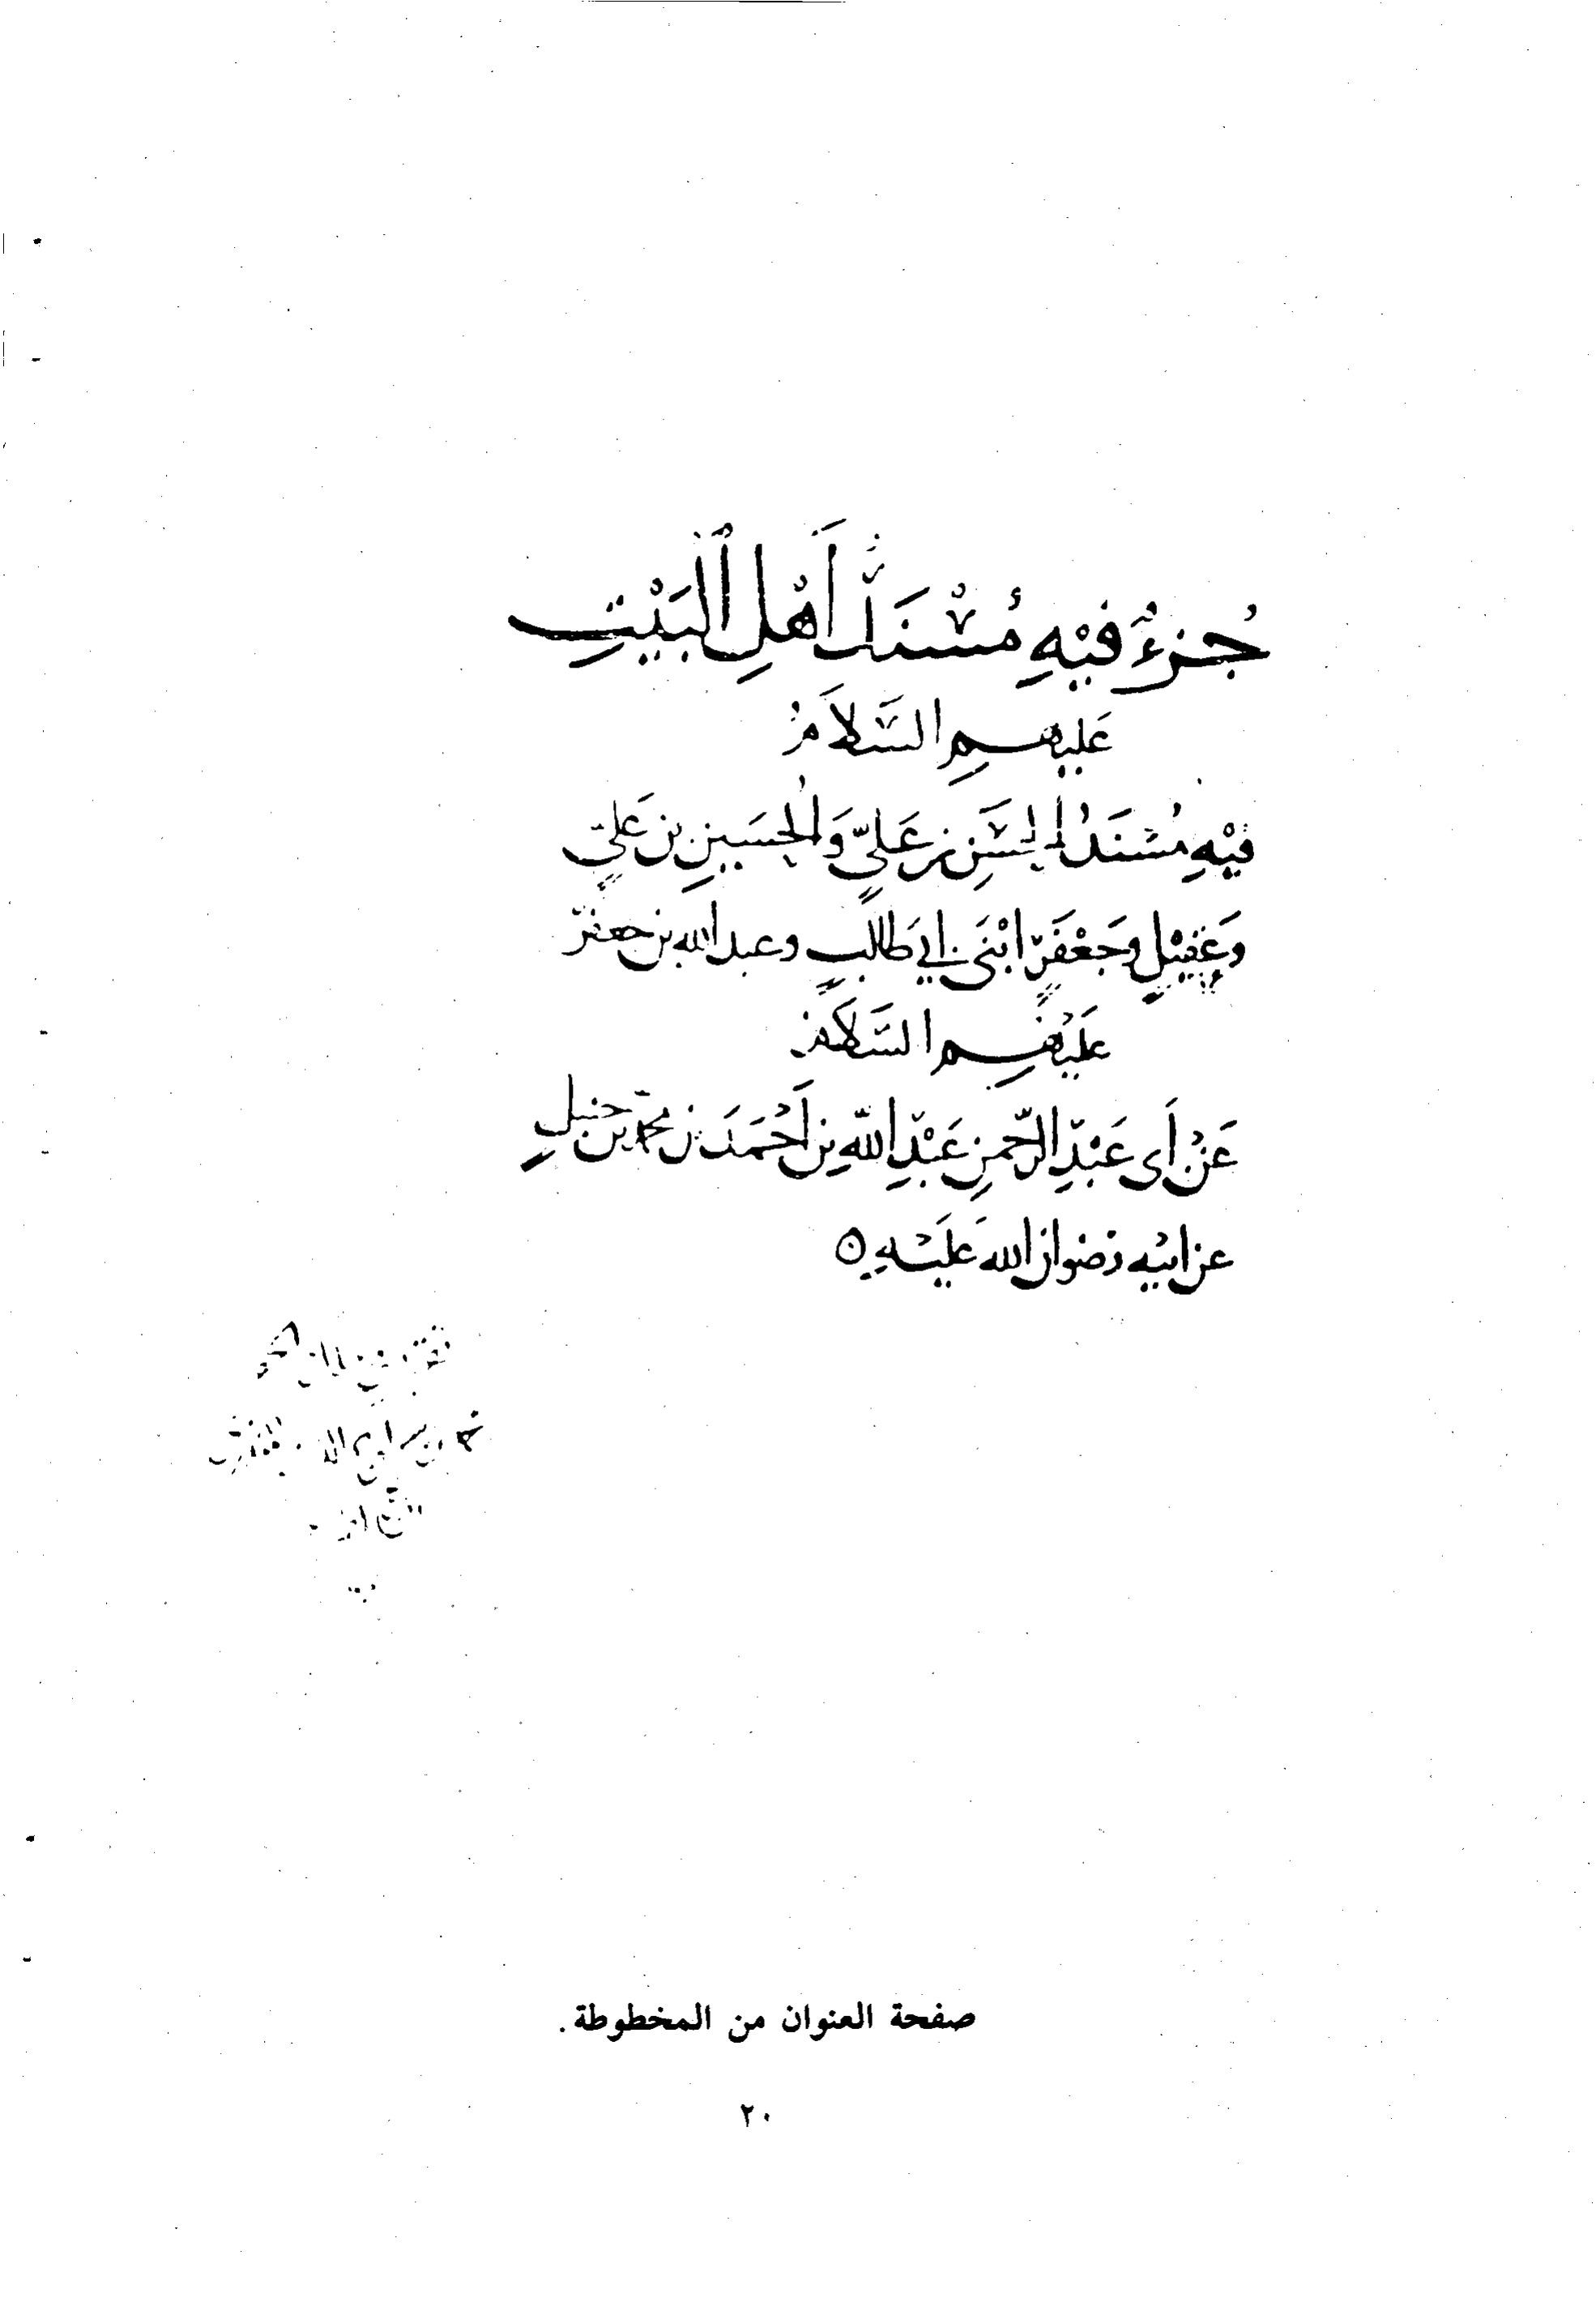 جُزءٌ فِيْهِ مُسْنَدُ أَهْلِ الْبَيْتِ
عَلَيهِمِ السَّلَامُ
فِيْهِ مُسْنَدُ الْحَسَنِ بنِ عَلِيٍّ وَالْحُسَيْنِ بنِ عَلِيٍّ
وَعَقِيْلٍ وَجَعْفَرٍ ابْنَي أَبِي طَالبٍ وعبد الله بن جعفر
عَلَيْهِم السَّلَامُ
عَنْ أَبي عَبْدِ الرَّحْمنِ عَبْدِ اللهِ بنِ أَحْمَدَ بن محمد بن حنبلٍ
عن ابيْه رضوان الله عَلَيْهِ
صفحة العنوان من المخطوطة.
٢٠